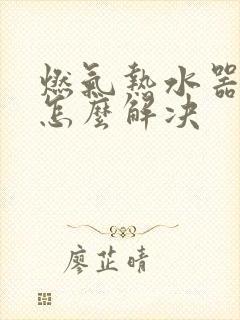 燃氣熱水器
怎麼解决
廖芷晴